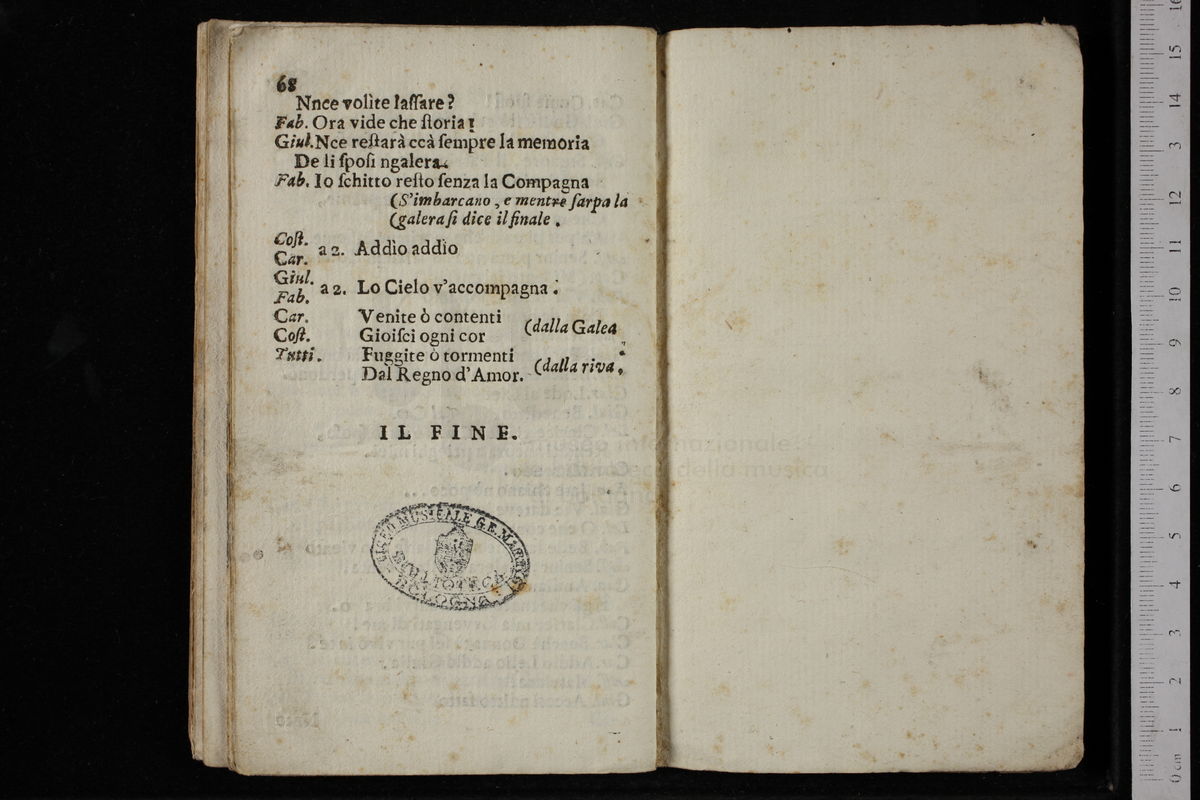 68
Nnce volìte lassare?
Fab. Ora vide che storia!
Giul. Nce restarà ccà sempre la memoria
De li sposi ngalera.
Fab. Io schitto resto senza la Compagna
(S'imbarcano, e mentre sarpa la
(galera si dice il finale.
Cost.
Car. a 2. Addìo addìo
Giul.
Fab. a 2. Lo Cielo v'accompagna.
Car. Venite ò contenti
Cost. Gioisci ogni cor (dalla Galea
Tutti. Fuggite ò tormenti
Dal Regno d'Amor. (dalla riva.
IL FINE.
LICEO MUSICALE G.B. MARTINI
BIBLIOTECA
BOLOGNA
museo internazionale
e biblioteca della musica